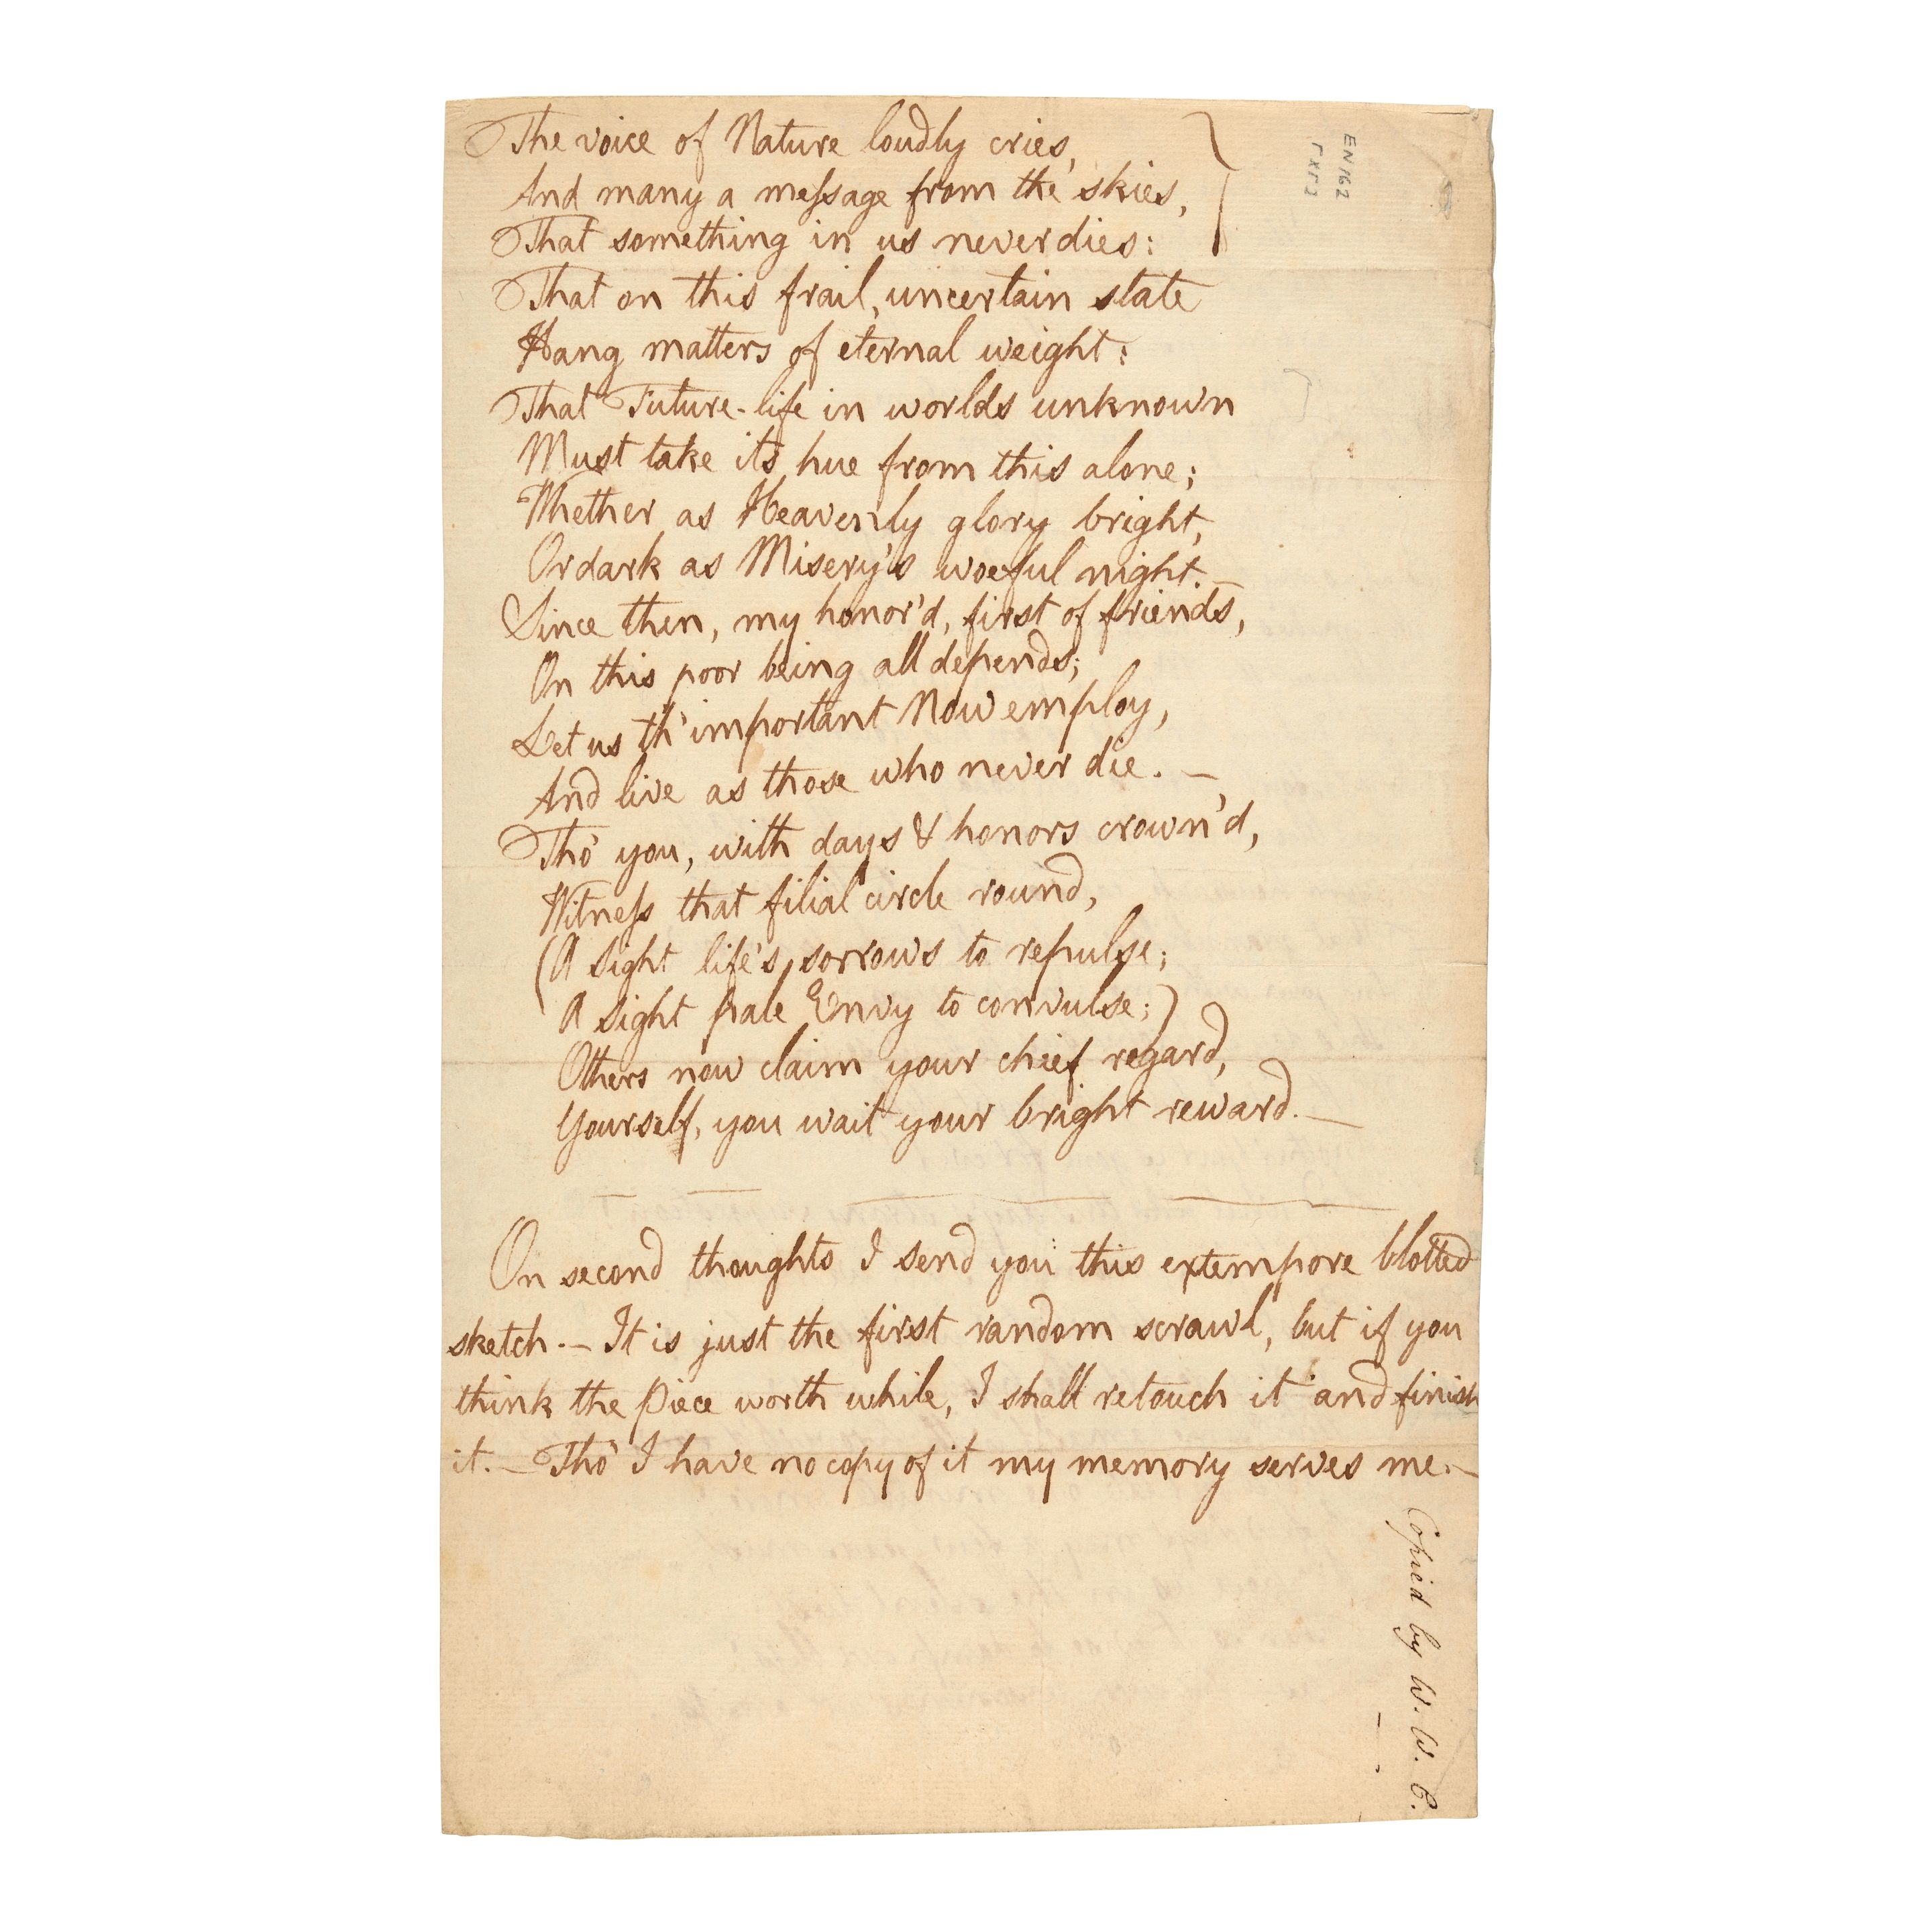 The voice of Nature loudly cries,
And many a meſsage from the skies,
That something in us never dies:
That on this frail, uncertain state
Hang matters of eternal weight:
That Future-life in worlds unknown
Must take its hue from this alone;
Whether as Heavenly glory bright,
Or dark as Misery's woeful night. —
Since then, my honor'd, first of friends,
On this poor being all depends;
Let us th' important Now employ,
And live as those who never die. —
Tho' you, with days & honors crown'd,
Witneſs that filial circle round,
(A sight life's sorrows to repulse;
A sight pale Envy to convulse;)
Others now claim your chief regard,
Yourself, you wait your bright reward. —
On second thoughts I send you this extempore blotted
sketch. — It is just the first random scrawl, but if you
think the piece worth while, I shall retouch it and finish
it. — Tho' I have no copy of it my memory serves me. —
Copied by W. W. C.
EN162